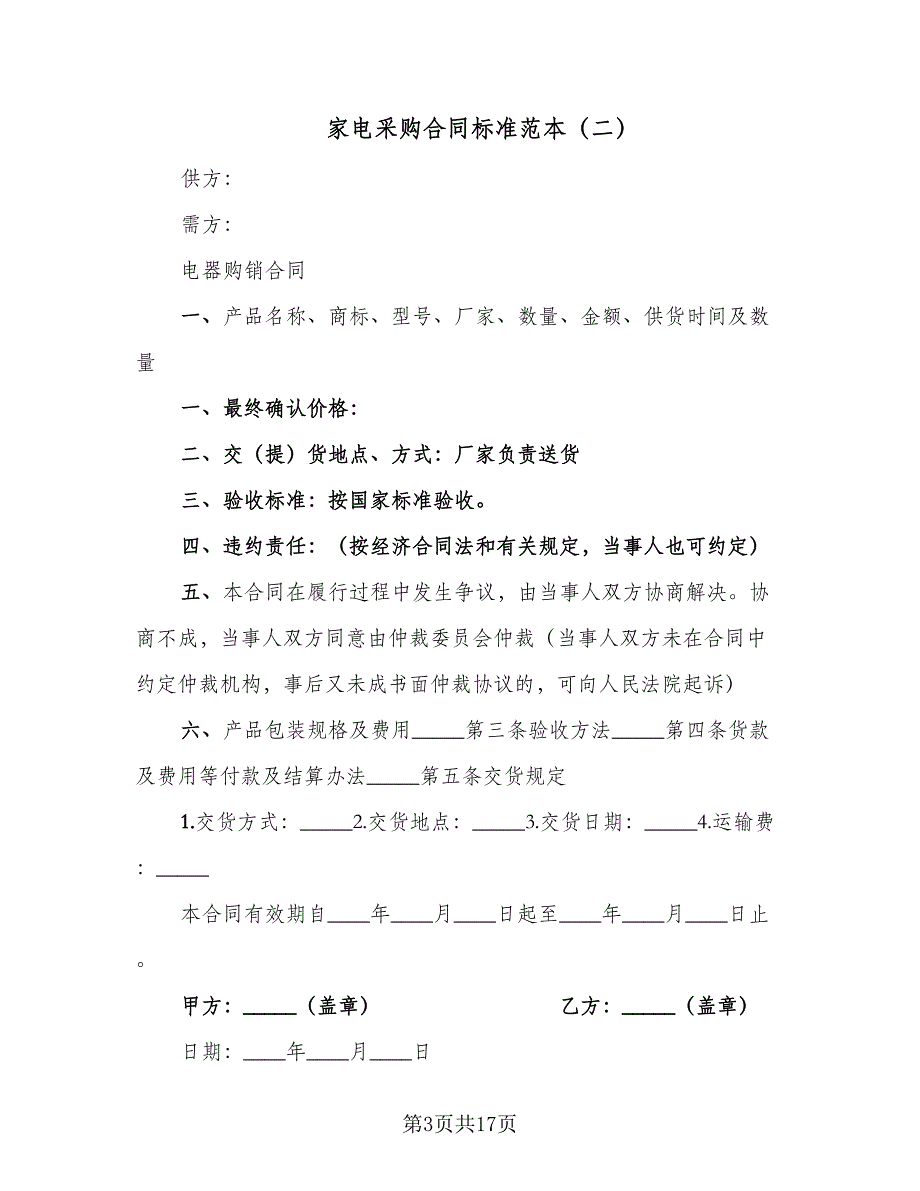 家电采购合同标准范本（二）
供方：
需方：
电器购销合同
一、产品名称、商标、型号、厂家、数量、金额、供货时间及数
量
一、最终确认价格：
二、交（提）货地点、方式：厂家负责送货
三、验收标准：按国家标准验收。
四、违约责任：（按经济合同法和有关规定，当事人也可约定）
五、本合同在履行过程中发生争议，由当事人双方协商解决。协
商不成，当事人双方同意由仲裁委员会仲裁（当事人双方未在合同中
约定仲裁机构，事后又未成书面仲裁协议的，可向人民法院起诉）
六、产品包装规格及费用_____第三条验收方法_____第四条货款
及费用等付款及结算办法_____第五条交货规定
1.交货方式：_____2.交货地点：_____3.交货日期：_____4.运输费
：_____
本合同有效期自____年____月____日起至____年____月____日止
。
甲方：_____（盖章） 乙方：_____（盖章）
日期：____年____月____日
第3页共17页